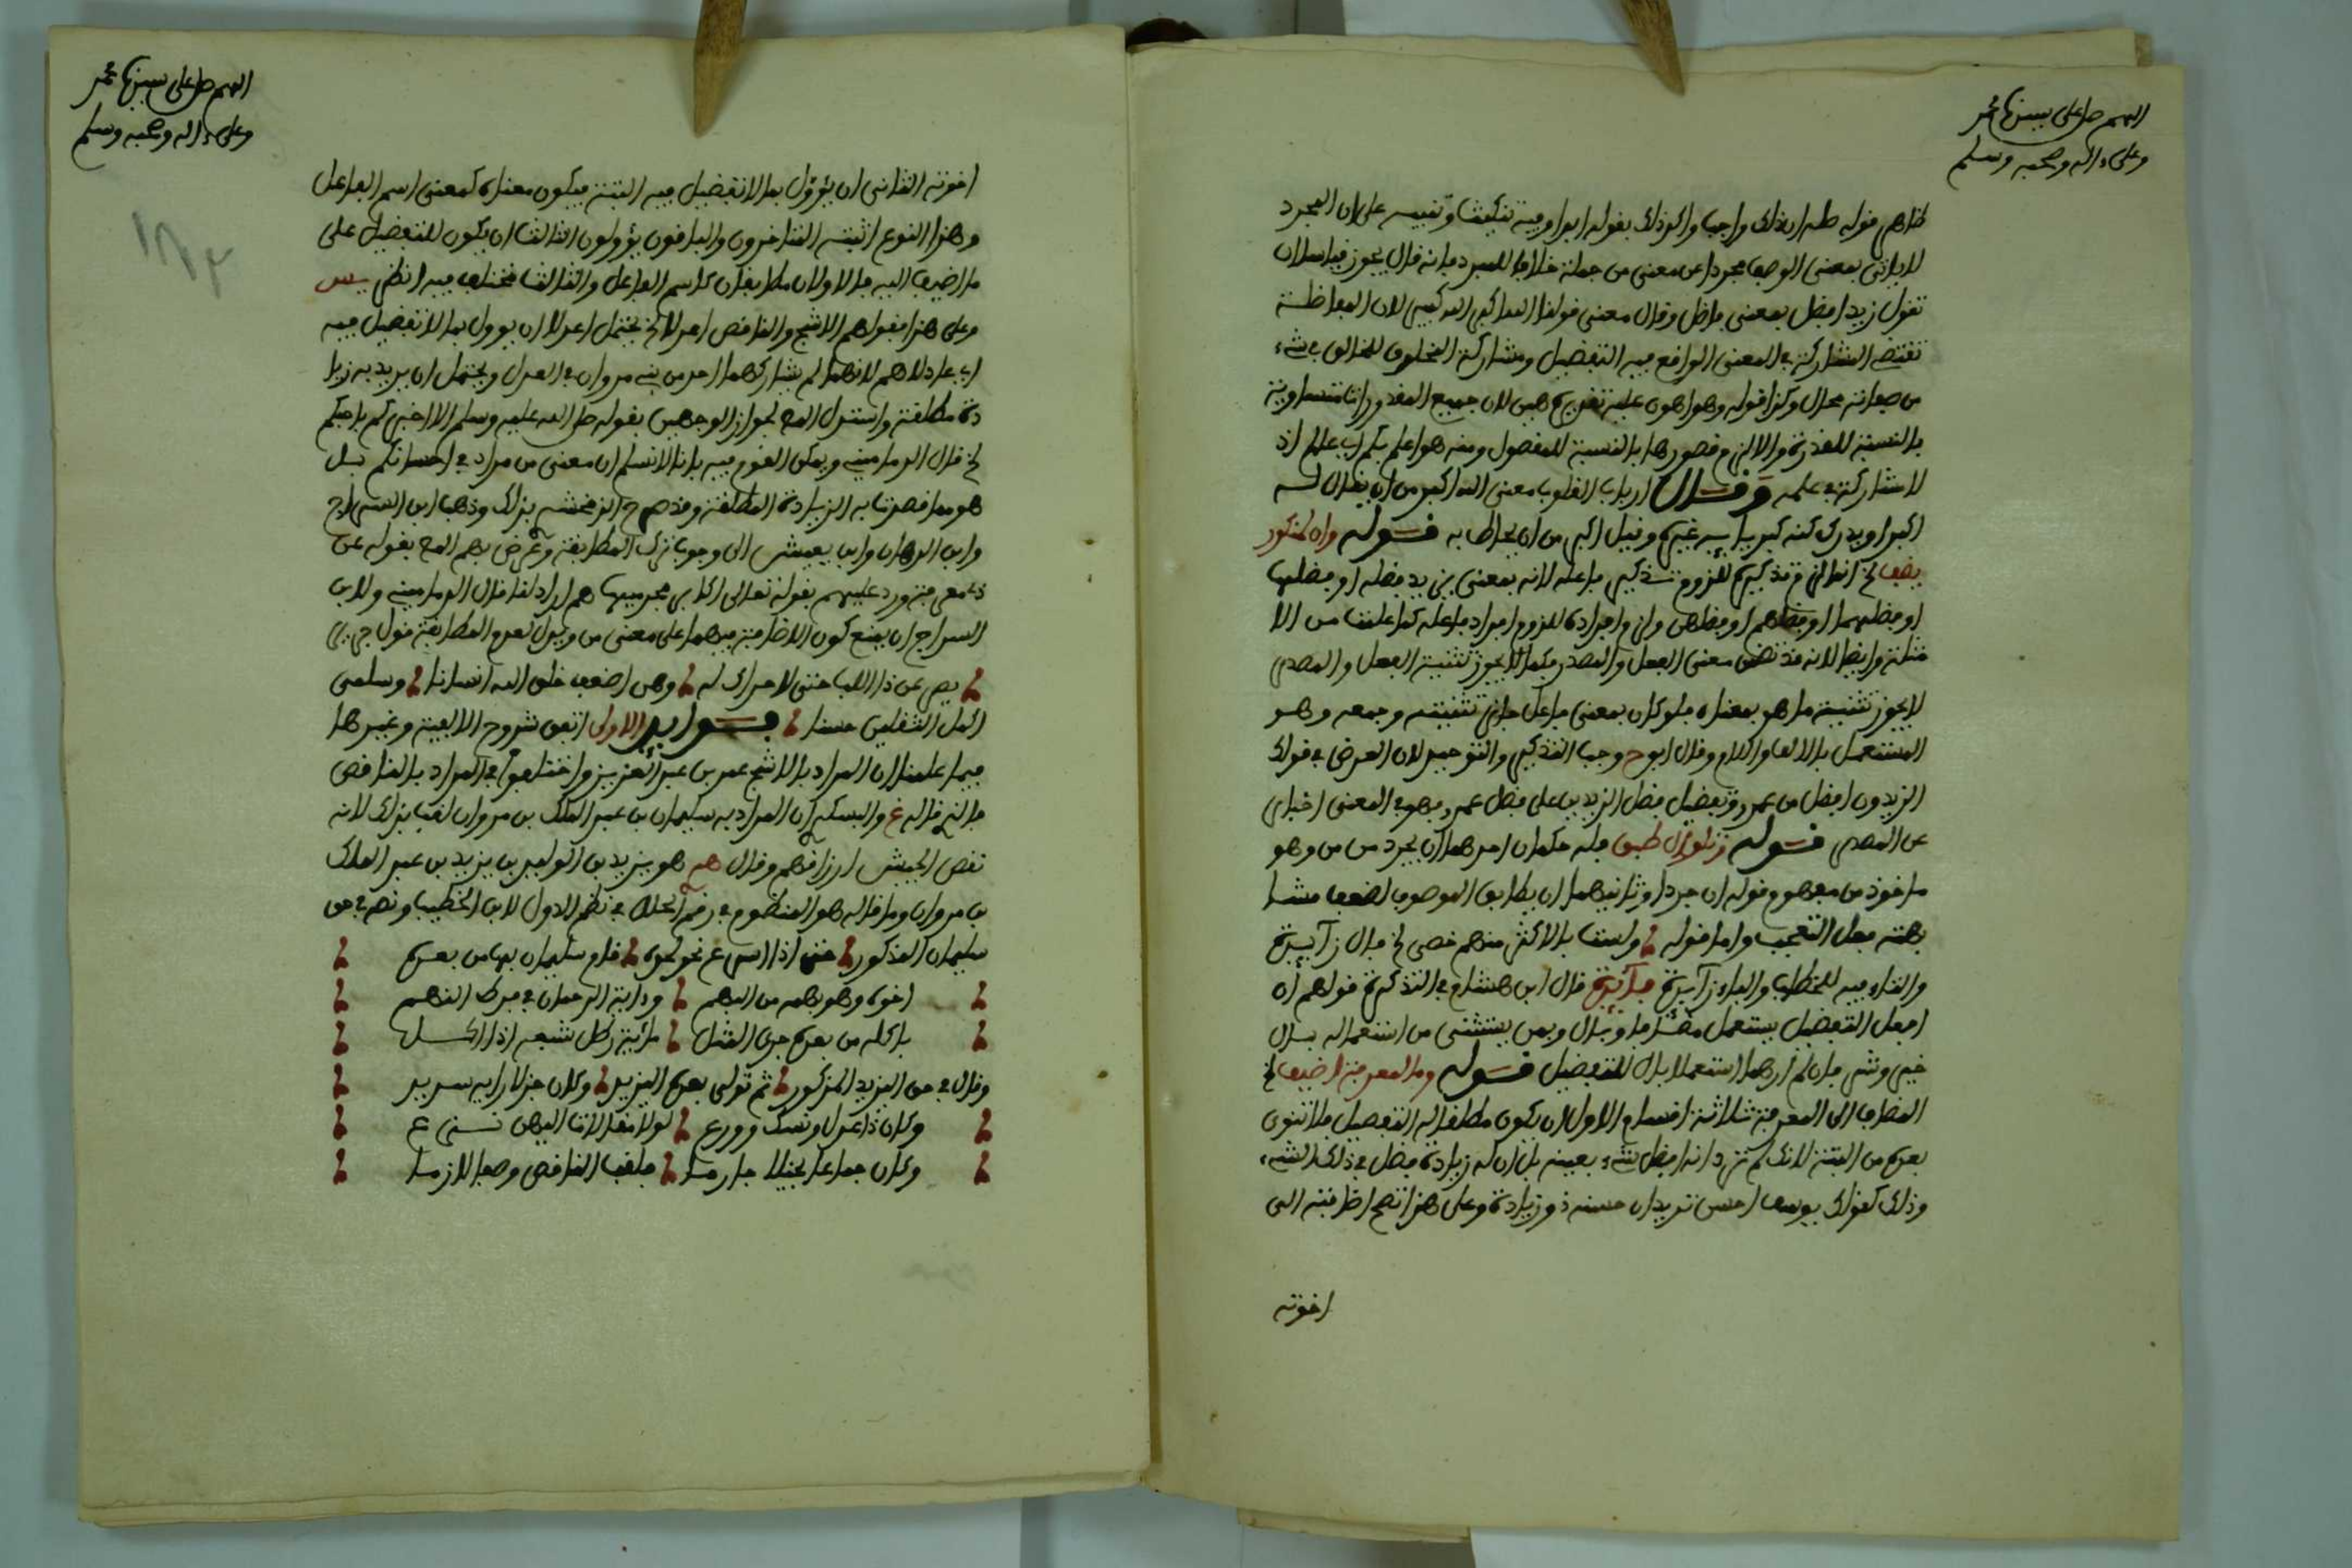 اللهم صل على سيدنا محمد
وعلى ءاله وصحبه وسلم
لا يأتي بمعنى الوصف مجردا عن معنى من جملة خلافا للمبرد فإنه قال يجوز قياسا لأن
تقول زيد افضل بمعنى فاضل وقال معنى قولنا الله اكبر الله كبير لان المفاضلة
تقتضي المشاركة في المعنى الواقع فيه التفضيل ومشاركة المخلوق للخالق في شيء
من صفاته محال وكذا قوله وهو اهون عليه تقديره هين لان جميع المقدورات متساوية
بالنسبة للقدرة
لا مشاركة في علمه وقال ارباب القلوب معنى الله اكبر من ان يقال له
اكبر او يدرك كنه كبريايه غيره وقيل اكبر من ان يحاط به قوله وان لمنكور
يضف الخ انما لزم تذكيره للزوم تذكير فاعله لانه بمعنى يزيد فضله او فضلها
او فضلهما او فضلهم او فضلهن ولزم افراده للزوم افراد فاعله كما علمت من الا
مثلة وايضا لانه قد تضمن معنى الفعل والمصدر فكما لا يجوز تثنية الفعل والمصدر
لا يجوز تثنية ما هو بمعناه فلو كان بمعنى فاعل جاز تثنيته وجمعه وهو
المستعمل بالالف واللام وقال ابو ح وجب التذكير والتوحيد لان الغرض في قولك
الزيدون افضل من عمرو تفضيل فضل الزيدين على فضل عمرو فهو في المعنى اخبار
عن المصدر قوله وتلو ال طبق فله حكمان احدهما ان يجرد من من وهو
ماخوذ من مفهوم قوله ان جردا وثانيهما ان يطابق الموصوف لضعف مشا
بهته فعل التعجب واما قوله ولست بالاكثر منهم حصى الخ فال زايدة
قال ابن هشام في التذكرة قولهم ان
افعل التفضيل يستعمل
خير وشر فان لم ارهما استعملا بال للتفضيل قوله وما لمعرفة اضيف الخ
المضاف الى المعرفة ثلاثة اقسام الاول ان يكون مطلقا له التفضيل فلا تنوى
بعده من البتة لانك لم ترد انه افضل من شيء بعينه بل ان له زيادة فضل في ذلك الشيء
وذلك كقولك يوسف احسن تريد ان حسنه ذو زيادة وعلى هذا تصح اضافته الى
اخوته
اللهم صل على سيدنا محمد
وعلى ءاله وصحبه وسلم
اخوته الثاني ان يؤول بما لا تفضيل فيه البتة فيكون معناه كمعنى اسم الفاعل
وهذا النوع اثبته المتاخرون والباقون يؤولون الثالث ان يكون للتفضيل على
ما اضيف اليه فالاولان مطابقان كاسم الفاعل والثالث مختلف فيه انظر يس
وعلى هذا فقولهم الاشج والناقص اعدلا الخ يحتمل اعدلا ان يوول بما لا تفضيل فيه
اي عادلاهم لانهما لم يشاركهما احد من بني مروان في العدل ويحتمل ان يريد به زيا
دة مطلقة واستدل المص لجواز الوجهين بقوله صلى الله عليه وسلم الا اخبركم باحبكم
الخ قال الدماميني ويمكن القدح فيه بانا لا نسلم ان معنى من مراد في احسنكم بل
هو مما قصدت به الزيادة المطلقة وقد صرح الزمخشري بذلك وذهب ابن السراج
وابن الدهان وابن يعيش الى وجوب ترك المطابقة وعرض بهم المص بقوله عن
ذي معرفة ورد عليهم بقوله تعالى اكابر مجرميها هم اراذلنا قال الدماميني ولابن
السراج ان يمنع كون الاضافة فيهما على معنى من ويدل لعدم المطابقة قول جرير
يصرعن ذا اللب حتى لا حراك له وهن اضعف خلق الله انسانا وسلمى
اكمل الثقلين حسنا فوايد الاولى اتفق شروح الالفية وغيرها
فيما علمنا ان المراد بالاشج عمر بن عبد العزيز واختلفوا في المراد بالناقص
فالذي قاله غ والبسكري ان المراد به سليمان بن عبد الملك بن مروان لقب بذلك لانه
نقص الجيش ارزاقهم وقال هم هو يزيد بن الوليد بن يزيد بن عبد الملك
بن مروان وما قاله هو المنظوم في رقم الحلل في نظم الدول لابن الخطيب ونصه في حق
سليمان المذكور قام سليمان بها من بعده
اخوه وهو نهمة من النهم وداية الرحمان في برك النهم
باكله من بعده جرى المثل
وقال في حق اليزيد المذكور ثم تولى بعده اليزيد وكان جزلا رايه سديد
وكان ذا عدل ونسك وورع
وكان جماعا بخيلا حازما فلقب الناقص وصفا لازما